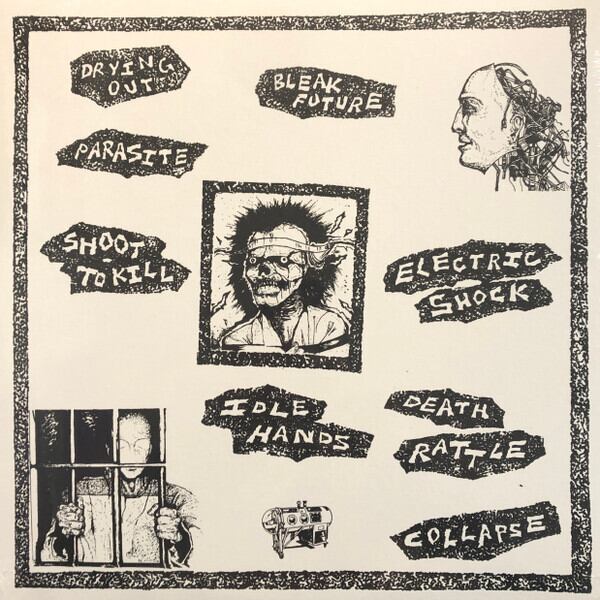 DRYING
OUT
BLEAK
FUTURE
PARASITE
SHOOT
TO KILL
ELECTRIC
SHOCK
IDLE
HANDS
DEATH
RATTLE
COLLAPSE